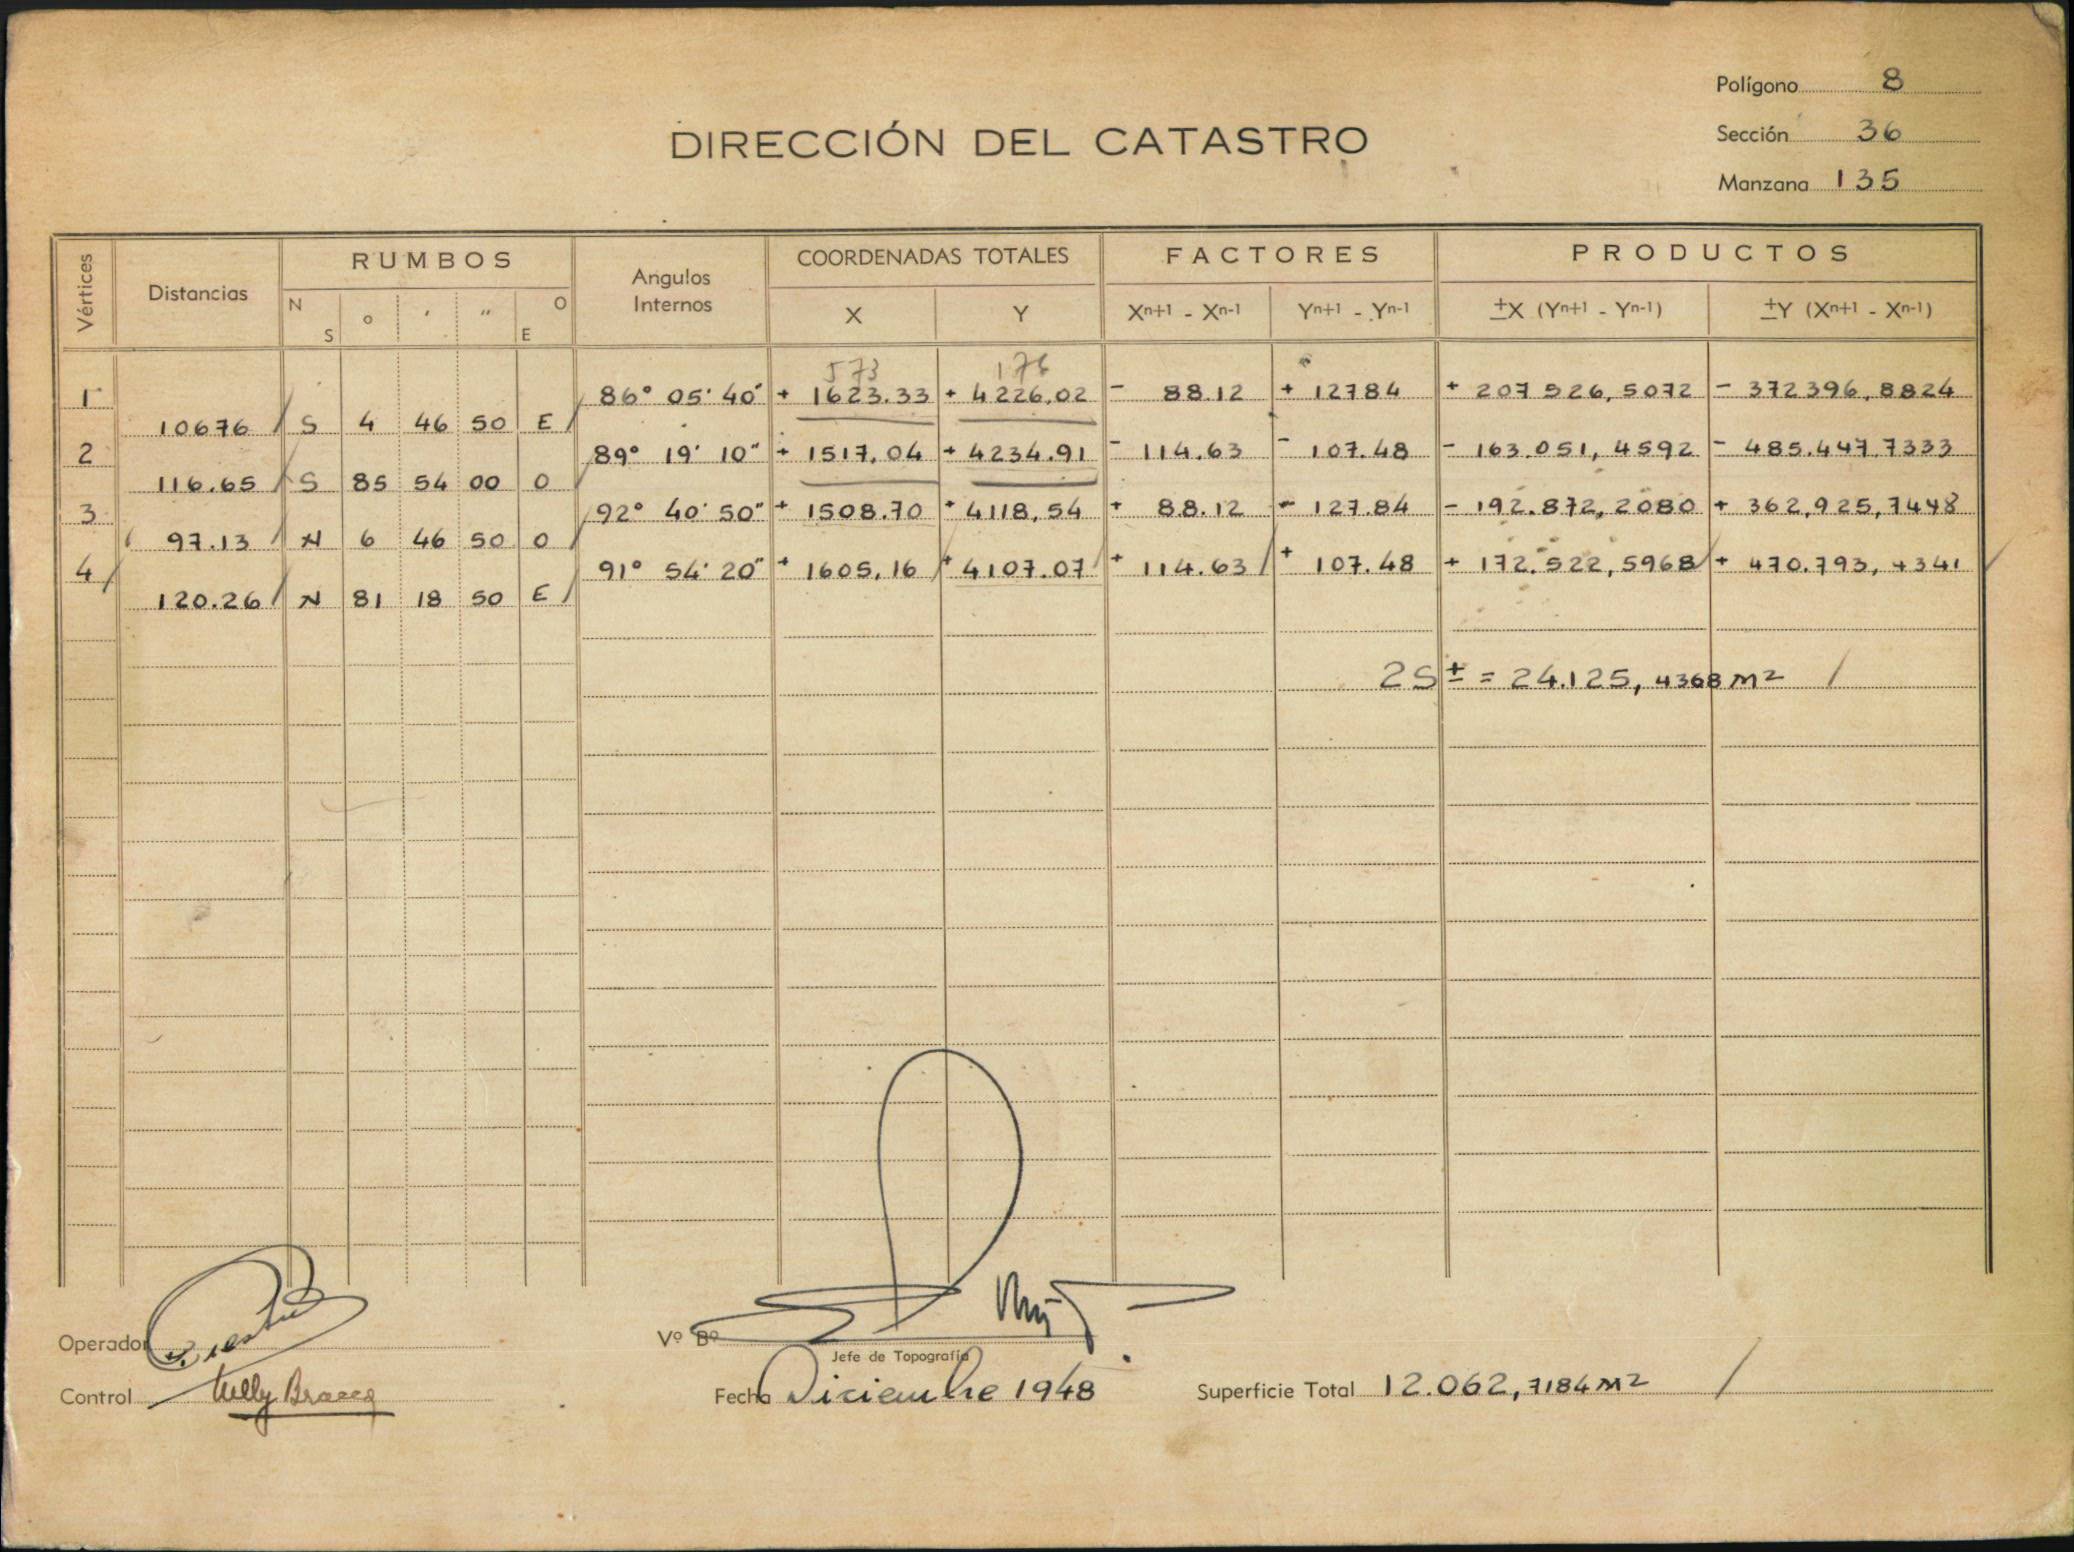 Polígono 8
DIRECCIÓN DEL CATASTRO
Sección 36
Manzana 135
Vértices Distancias RUMBOS Angulos Internos COORDENADAS TOTALES FACTORES PRODUCTOS
N S ° ' " O E X Y Xn+1 - Xn-1 Yn+1 - Yn-1 ±X (Yn+1 - Yn-1) ±Y (Xn+1 - Xn-1)
573 176
1 86° 05' 40" + 1623.33 + 4226,02 - 88.12 + 12784 + 207526,5072 - 372396,8824
10676 S 4 46 50 E
2 89° 19' 10" + 1517,04 + 4234.91 - 114.63 - 107.48 - 163.051,4592 - 485.447.7333
116.65 S 85 54 00 O
3 92° 40' 50" + 1508.70 + 4118,54 + 88.12 - 127.84 - 192.872,2080 + 362,925,7448
97.13 N 6 46 50 O
4 91° 54' 20" + 1605,16 + 4107.07 + 114.63 + 107.48 + 172.522,5968 + 470.793,4341
120.26 N 81 18 50 E
2S ± = 24.125,4368 m2
Operador
Vº Bº
Jefe de Topografía
Control
Fecha Diciembre 1948
Superficie Total 12.062,7184 m2